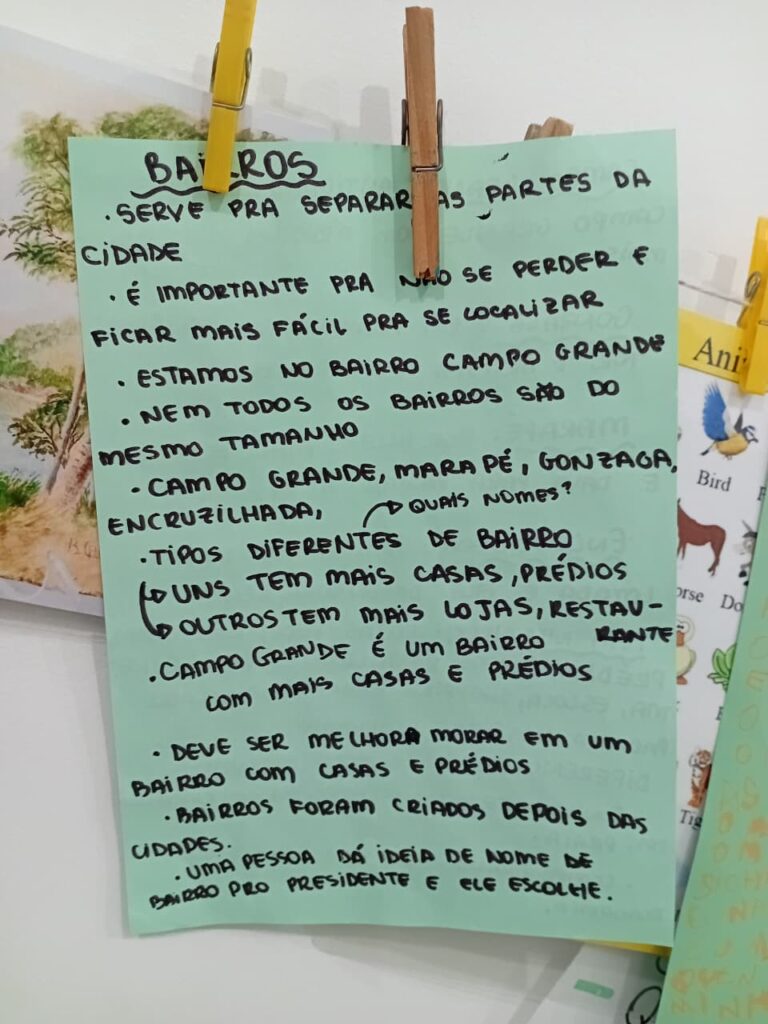 BAIRROS
• SERVE PRA SEPARAR AS PARTES DA
CIDADE
• É IMPORTANTE PRA NÃO SE PERDER E
FICAR MAIS FÁCIL PRA SE LOCALIZAR
• ESTAMOS NO BAIRRO CAMPO GRANDE
• NEM TODOS OS BAIRROS SÃO DO
MESMO TAMANHO
• CAMPO GRANDE, MARAPÉ, GONZAGA,
ENCRUZILHADA, → QUAIS NOMES?
• TIPOS DIFERENTES DE BAIRRO
→ UNS TEM MAIS CASAS, PRÉDIOS
→ OUTROS TEM MAIS LOJAS, RESTAU-
RANTE
• CAMPO GRANDE É UM BAIRRO
COM MAIS CASAS E PRÉDIOS
• DEVE SER MELHOR MORAR EM UM
BAIRRO COM CASAS E PRÉDIOS
• BAIRROS FORAM CRIADOS DEPOIS DAS
CIDADES.
• UMA PESSOA DÁ IDEIA DE NOME DE
BAIRRO PRO PRESIDENTE E ELE ESCOLHE.
Ani
Bird
orse Do
Tig